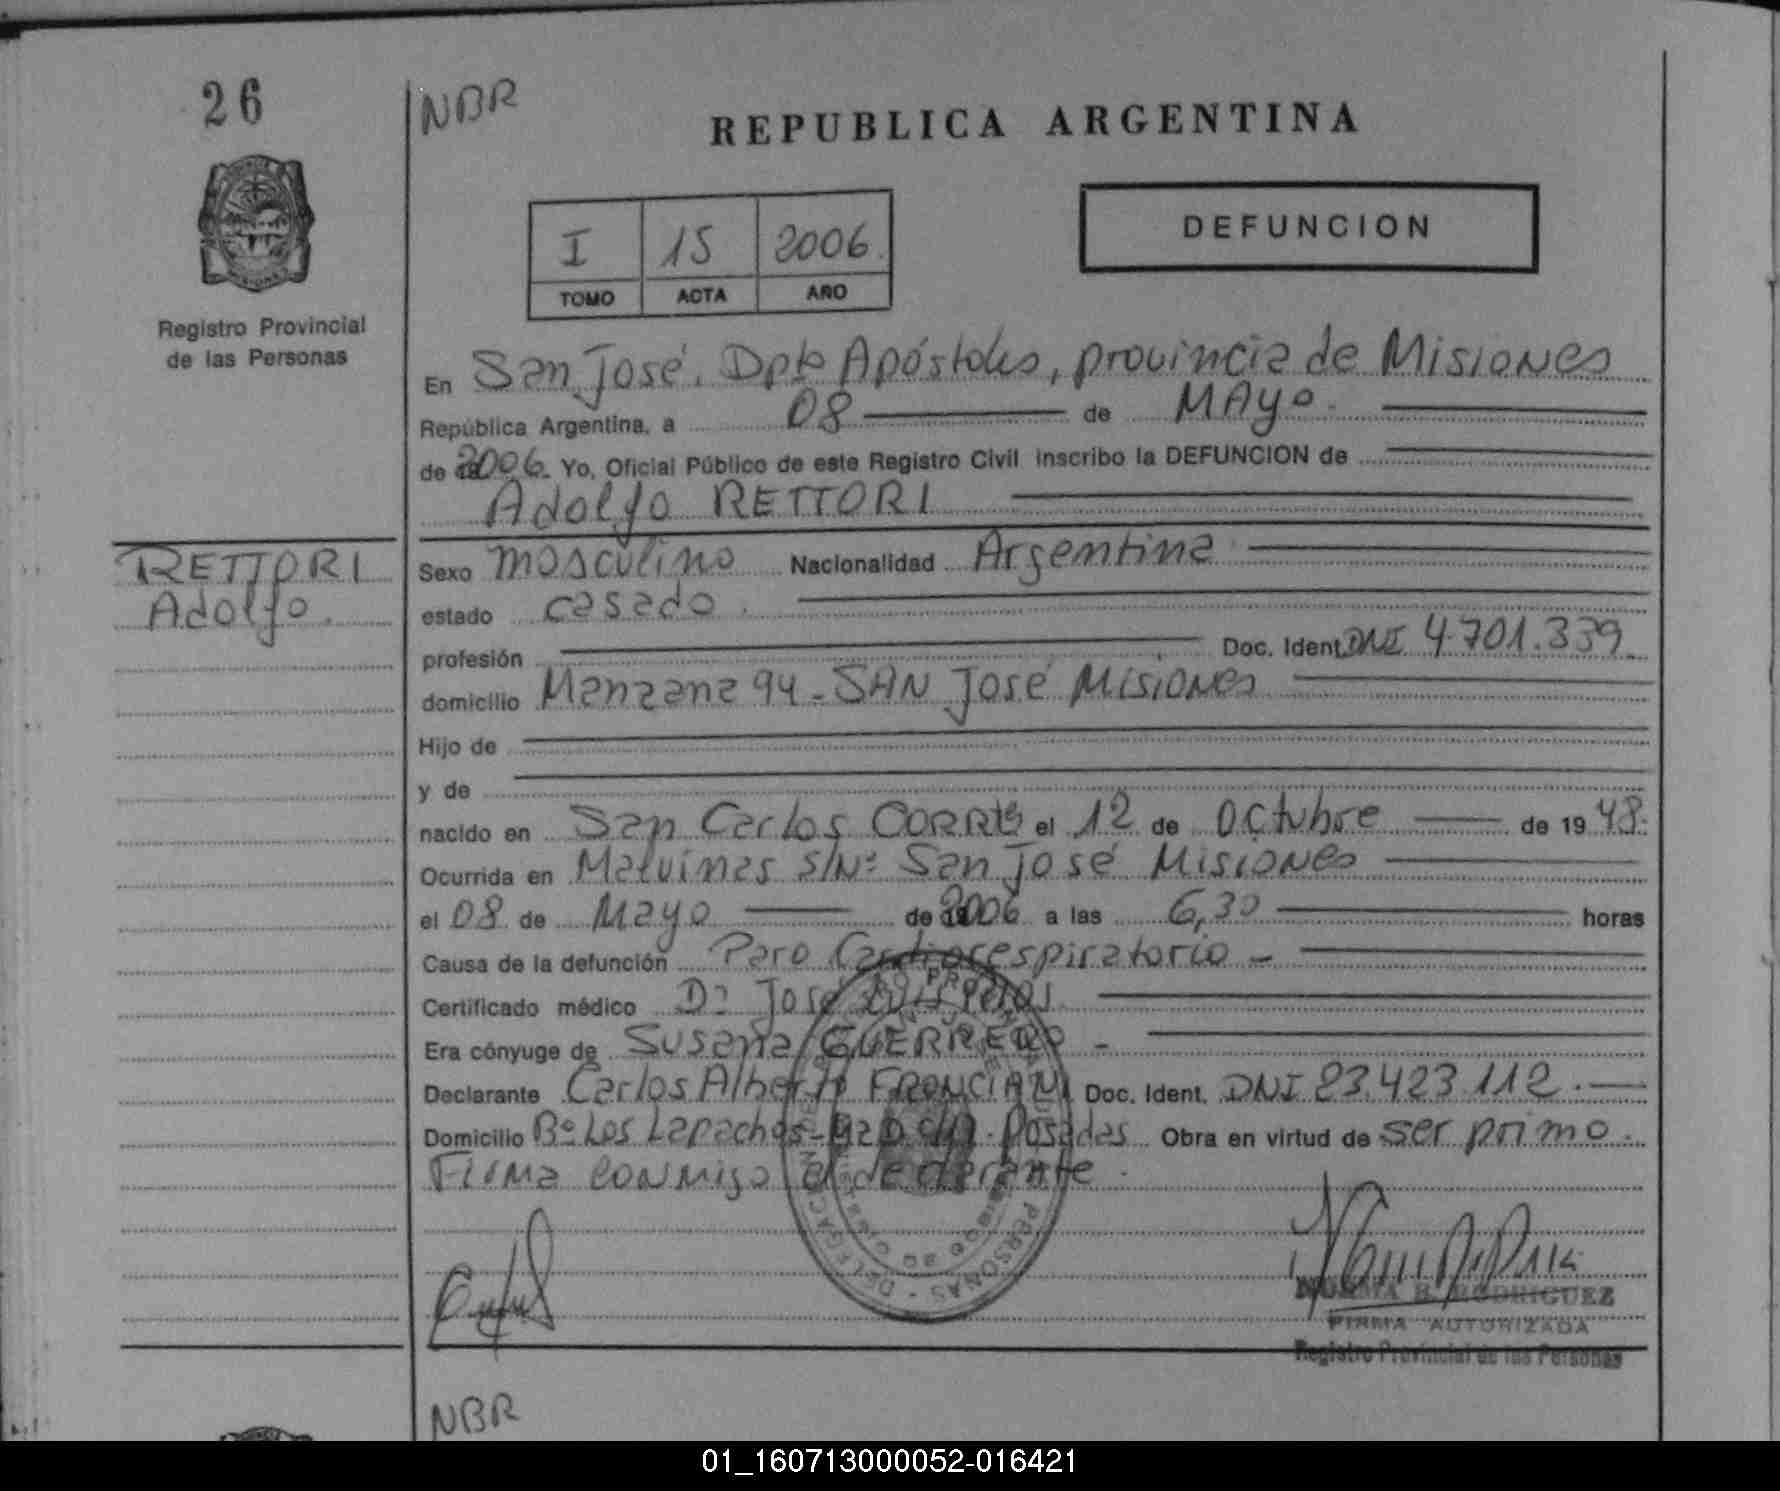 26
NBR
REPUBLICA ARGENTINA
I 15 2006
TOMO ACTA AÑO
DEFUNCION
Registro Provincial
de las Personas
En San José, Dpto Apóstoles, provincia de Misiones
República Argentina, a 08 de Mayo
de 2006 Yo, Oficial Público de este Registro Civil inscribo la DEFUNCION de
Adolfo RETTORI
RETTORI
Adolfo.
Sexo masculino Nacionalidad Argentina
estado casado.
profesión Doc. Ident. DNI 4.701.339
domicilio Manzana 94 - SAN José Misiones
Hijo de
y de
nacido en San Carlos CORRtes el 12 de Octubre de 1948.
Ocurrida en Malvinas S/Nº San José Misiones
el 08 de Mayo de 2006 a las 6,30 horas
Causa de la defunción Paro Cardiorespiratorio -
Certificado médico Dr José Luis
Era cónyuge de Susana GUERRERO -
Declarante Carlos Alberto FRANCIANI Doc. Ident. DNI 23.423.112.
Domicilio Bº Los Lapachos - Posadas Obra en virtud de ser primo.
Firma conmigo el declarante.
NORMA B. RODRIGUEZ
FIRMA AUTORIZADA
Registro Provincial de las Personas
NBR
01_160713000052-016421